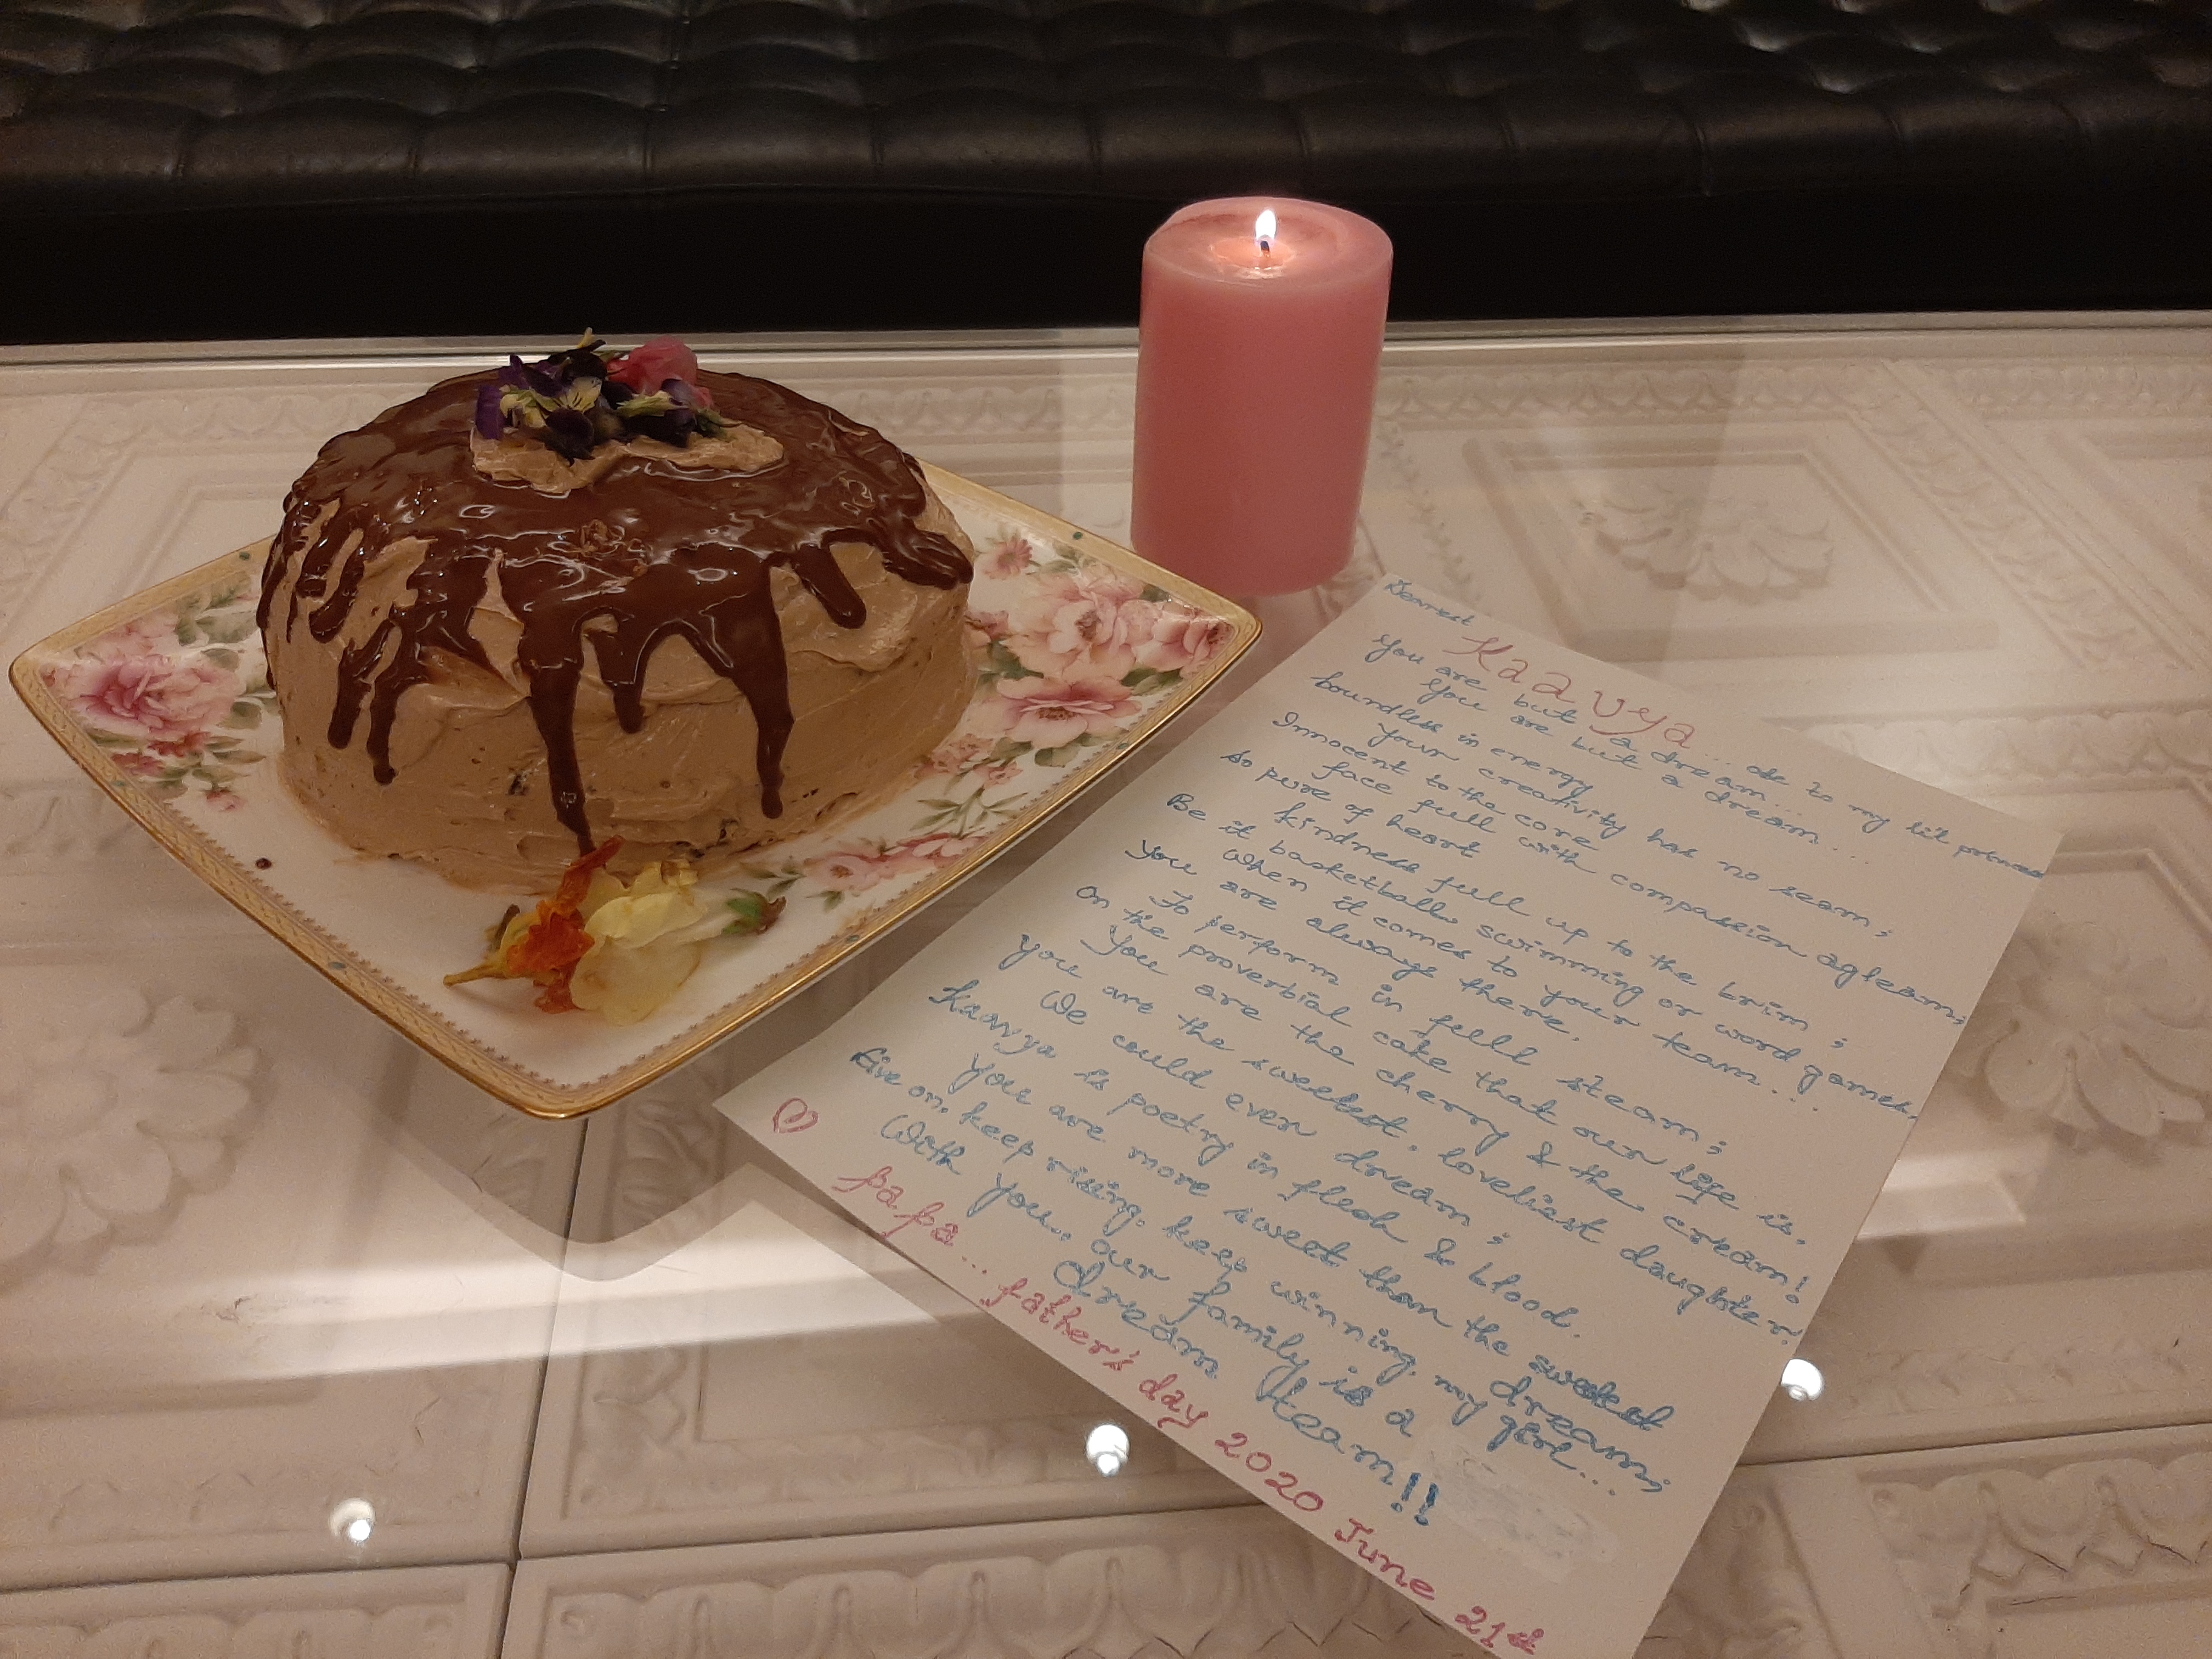 Dearest Kaavya... ode to my lil princess
You are but a dream...
You are but a dream...
boundless in energy
Your creativity has no seam;
Innocent to the core
face full with compassion agleam;
So pure of heart
kindness full up to the brim;
Be it basketball, swimming or word games,
When it comes to your team...
You are always there,
To perform in full steam;
On the proverbial cake that our life is,
You are the cherry & the cream!
You are the sweetest, loveliest daughter,
We could even dream;
Kaavya is poetry in flesh & blood.
You are more sweet than the sweetest dream;
Live on, keep rising, keep winning, my girl...
With you, our family is a
dream team!!
papa... father's day 2020 June 21st